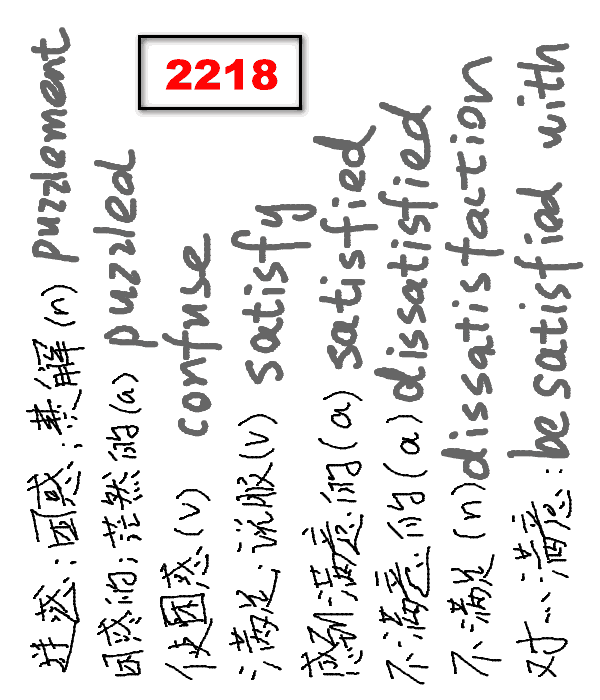 2218
迷惑;困惑;费解(n) puzzlement
困惑的;茫然的(a) puzzled
使困惑(v) confuse
满足;说服(v) satisfy
感到满意的(a) satisfied
不满意的(a) dissatisfied
不满足(n) dissatisfaction
对…满意: be satisfied with